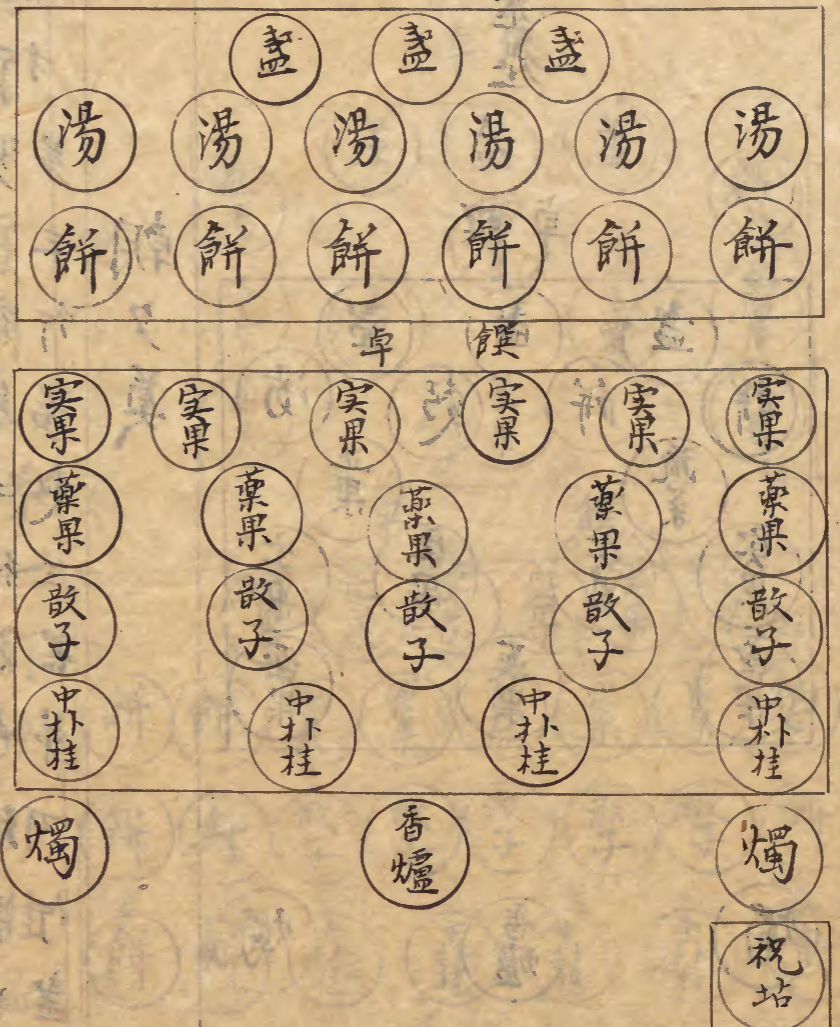 盞 盞 盞
湯 湯 湯 湯 湯 湯
餅 餅 餅 餅 餅 餅
卓 饌
実果 実果 実果 実果 実果 実果
藥果 藥果 藥果 藥果 藥果
散子 散子 散子 散子 散子
中朴桂 中朴桂 中朴桂 中朴桂
燭 香爐 燭
祝坫